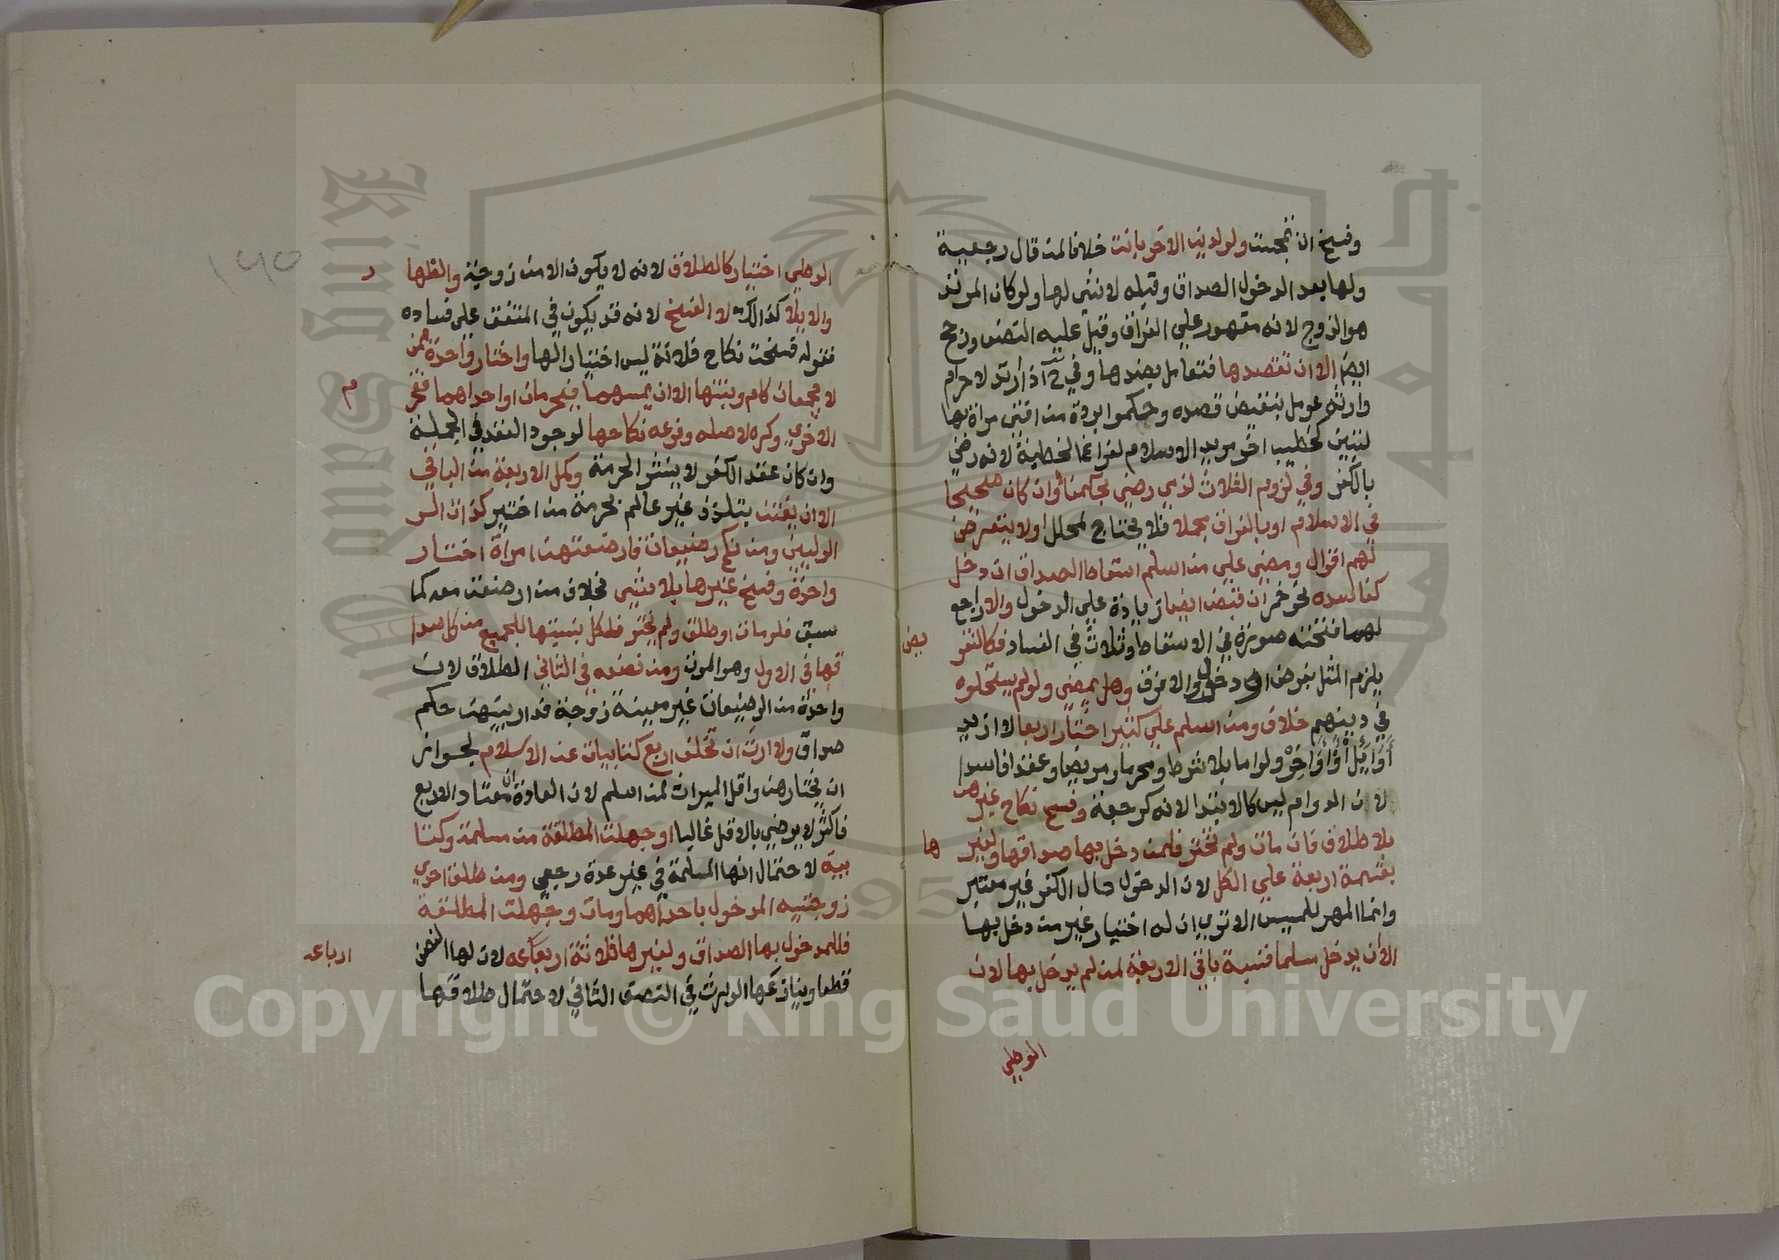 وفسخ ان تمجست ولو لدين الاخر بانت خلافا لمن قال رجعية
ولها بعد الدخول الصداق وقبله لا شيء لها ولو كان المرتد
هو الزوج لانه مقهور على الفراق وقيل عليه النصف ورجح
ايضا الا ان تقصدها فتعامل بضدها وفي اذا ارتد لاحرام
وارثه عومل بنقيض قصده وحكموا بردة من افتى مراة بها
لتبين كخطيب اخر مريد الاسلام لفراغ الخطبة لانه رضي
بالكفر وفي لزوم الثلاث لذمي رضي بحكمنا وان كان صحيحا
في الاسلام او بالفراق مجملا فلا يحتاج لمحلل او لا يتعرض
لهم اقوال ومضى على من اسلم اسقاط الصداق ان دخل
كفاسده نحو خمر ان قبض ايضا زيادة على الدخول والا راجع
لهما فتحته صورة في الاسقاط وثلاث في الفساد فكالتفو
يض
يلزم المثل بفرض او دخول والا فرق وهل يمضي ولو لم يستحلوه
في دينهم خلاف ومن اسلم على كثير اختار اربعا لا ازيد
أَوَايِلَ أَوْ أَوَاخِرَ ولو اما بلا شرط ومحرما ومريضا وعقد افاسدا
لان الدوام ليس كالابتدا لانه كرجعة وفسخ نكاح غيرهن
بلا طلاق فان مات ولم يختر فلمن دخل بها صداقها ولغير
ها
بقسمة اربعة على الكل لان الدخول حال الكفر غير معتبر
وانما المهر للمسيس الا ترى ان له اختيار غير من دخل بها
الا ان يدخل مسلما فنسبة باقي الاربعة لمن لم يدخل بها لان
الوطي
الوطي اختيار كالطلاق لانه لا يكون الا من زوجية والظها
ر
والايلا كذالك لا الفسخ لانه قد يكون في المتفق على فساده
فقوله فسخت نكاح فلانة ليس اختيارا لها واختار واحدة ممن
لا يجمعان كام وبنتها الا ان يمسهما فيحرمان او احداهما فتحر
م
الاخرى وكره لاصله وفرعه نكاحها لوجود العقد في الجملة
وان كان عقد الكفر لا ينشر الحرمة وكمل الاربعة من الباقي
الا ان يفتت بتلذذ غير عالم بحرمة من اختير كذات الـ
الوليين ومن نكح رضيعات فارضعتهن امراة اختار
واحدة وفسخ غيرها بلا شيء بخلاف من ارضعت معه كما
سبق فلو مات او طلق ولم يختر فلكل بنسبتها للجميع من كل صدا
قها في الاول وهو الموت ومن نصفه في الثاني الطلاق لان
واحدة من الرضيعات غير معينة زوجة فدار بينهن حكم
صداق ولا ارث ان تخلف اربع كتابيات عن الاسلام لجواز
ان يختارهن واقل الميراث لمن اسلم لان العادة ان معتاد الاربع
فاكثر لا يرضى بالاقل غالبا او جهلت المطلقة من مسلمة وكتا
بية لاحتمال انها المسلمة في غير عدة رجعي ومن طلق احدى
زوجتيه المدخول باحداهما ومات وجهلت المطلقة
فللمدخول بها الصداق ولغيرها ثلاثة ارباعه لان لها النصف
ارباعه
قطعا وينازعها الوارث في النصف الثاني لاحتمال طلاقها
١٩٥
Copyright © King Saud University